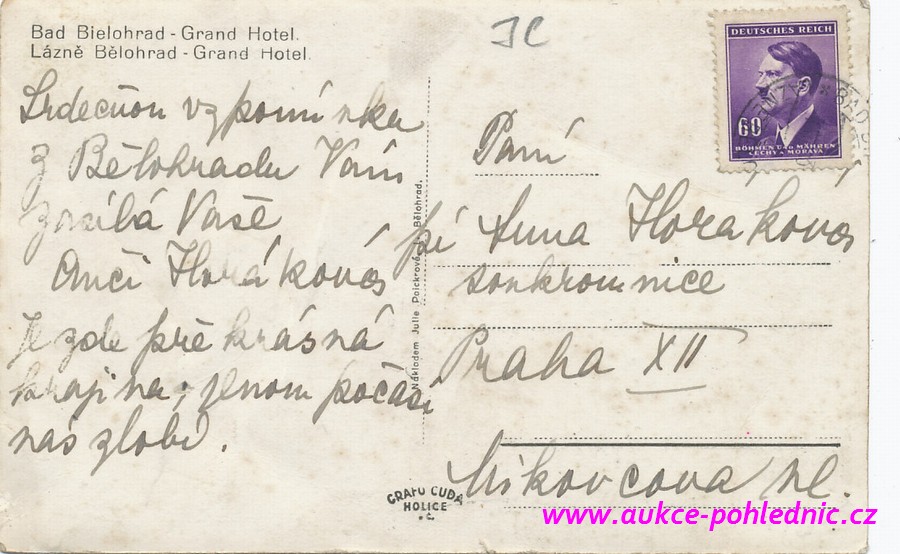 Bad Bielohrad - Grand Hotel.
Lázně Bělohrad - Grand Hotel.
JC
Srdečnou vzpomínku
z Bělohradu Vám
zasílá Vaše
Anči Horáková
Je zde překrásná
krajina, jenom počasí
nás zlobí.
Nákladem Julie Paickrové, Bělohrad.
GRAFO ČUDA
HOLICE
DEUTSCHES REICH
60
BÖHMEN UND MÄHREN
ČECHY A MORAVA
Paní
pí Anna Horakova
soukromnice
Praha XII
Mikovcova ul.
www.aukce-pohlednic.cz